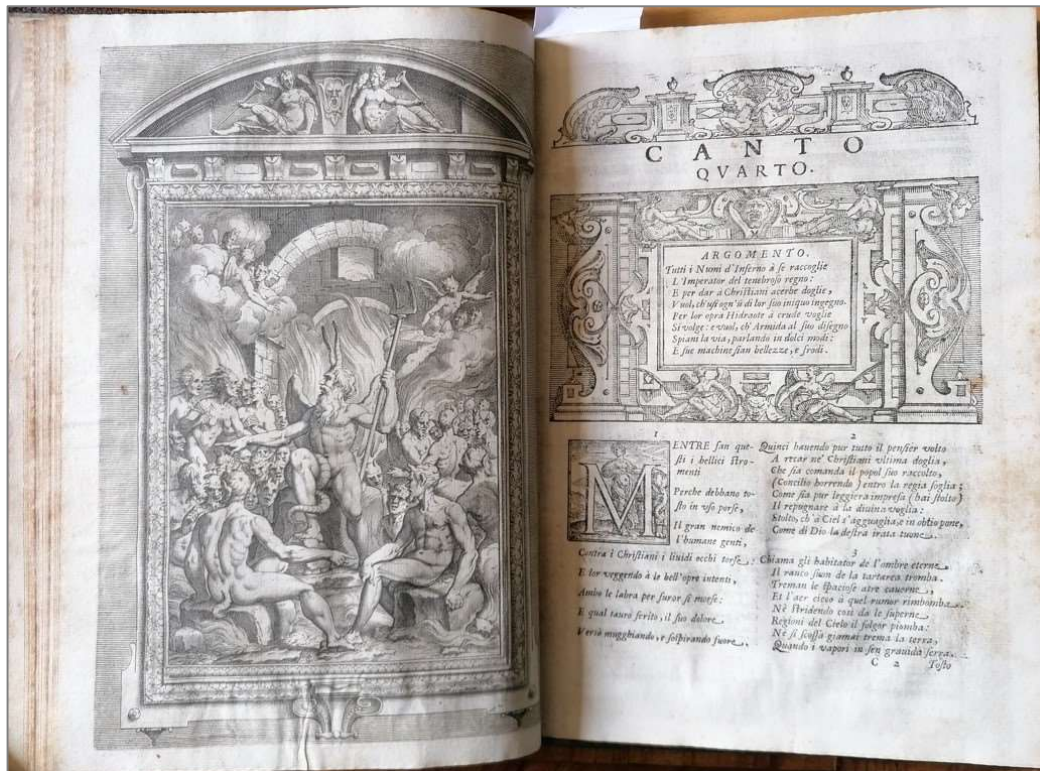 CANTO
QVARTO.
ARGOMENTO.
Tutti i Numi d'Inferno à se raccoglie
L'Imperator del tenebroso regno:
E per dar à Christiani acerbe doglie,
Vuol, ch'usi ogn'ũ di lor suo iniquo ingegno.
Per lor opra Hidraote à crude voglie
Si volge: e vuol, ch'Armida al suo disegno
Spiani la via, parlando in dolci modi:
E sue machine sian bellezze, e frodi.
1
MENTRE san que-
sti i bellici stro-
menti
Perche debbano to-
sto in vso porse,
Il gran nemico de
l'humane genti,
Contra i Christiani i liuidi occhi torse:
E lor veggendo à le bell'opre intenti,
Ambo le labra per furor si morse:
E qual tauro ferito, il suo dolore
Versò mugghiando, e sospirando fuore.
2
Quinci hauendo pur tutto il pensier volto
A recar ne' Christiani vltima doglia,
Che sia comanda il popol suo raccolto,
(Concilio horrendo) entro la regia soglia;
Come sia pur leggiera impresa (hai stolto)
Il repugnare à la diuina voglia:
Stolto, ch'à Ciel s'agguaglia, e in oblio pone,
Come di Dio la destra irata tuone.
3
Chiama gli habitator de l'ombre eterne
Il rauco suon de la tartarea tromba.
Treman le spaciose atre cauerne,
Et l'aer cieco à quel rumor rimbomba.
Nè stridendo così da le superne
Regioni del Cielo il folgor piomba:
Nè sì scossa giamai trema la terra,
Quando i vapori in sen grauida serra.
C 2
Tosto